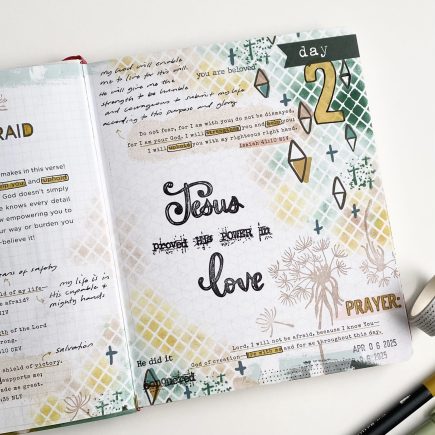 RAID
makes in this verse!
you and uphold
God doesn't simply
e knows every detail
empowering you to
ur way or burden you
believe it!
of safety
of my life—
afraid?
NIV
my life is in
His capable &
mighty hands
of the Lord
trong.
salvation
shield of victory.
supports me;
ade me great.
:35 NLT
my God will enable
me to live for this will.
He will give me the
strength to be humble
and courageous to submit my life
according to His purpose and glory
you are beloved
day
2
Do not fear, for I am with you; do not be dismayed,
for I am your God. I will strengthen you and help you;
I will uphold you with my righteous right hand.
Isaiah 41:10 NIV
Jesus
proved His POWER in
love
PRAYER:
Lord, I will not be afraid, because I know You—
God of creation—are with me and for me throughout this day.
He did it
conquered
APR 06 2025
2025